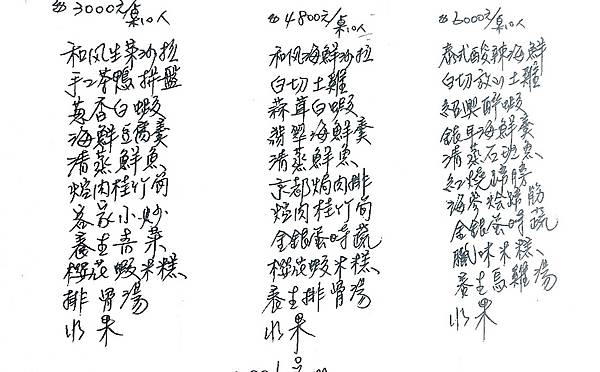 3000元/桌10人
和风生菜沙拉
手工茶鴨拼盤
蔥香白蝦
海鮮豆腐羹
清蒸鮮魚
焢肉桂竹筍
客家小炒
養生青菜
櫻花蝦米糕
排骨湯
水果
4800元/桌10人
和风海鮮沙拉
白切土雞
蒜茸白蝦
翡翠海鮮羹
清蒸鮮魚
京都焗肉排
焢肉桂竹筍
金銀蛋時蔬
櫻花蝦米糕
養生排骨湯
水果
6000元/桌10人
泰式酸辣海鮮
白切放山土雞
紹興醉蝦
銀耳海鮮羹
清蒸石斑魚
紅燒蹄膀
海參燴蹄筋
金銀蛋時蔬
臘味米糕
養生烏雞湯
水果